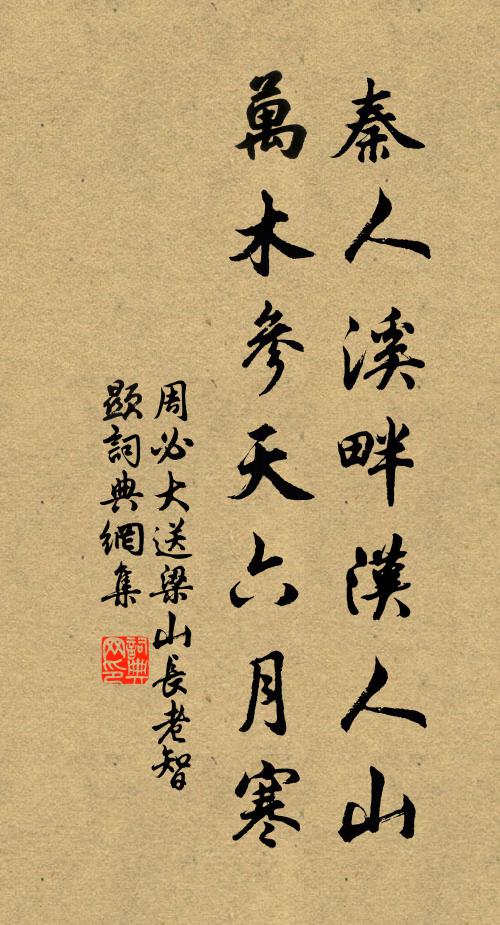 秦人溪畔漢人山
萬木參天六月寒
周必大送梁山長老智
顯詞典網集
詞典
网印